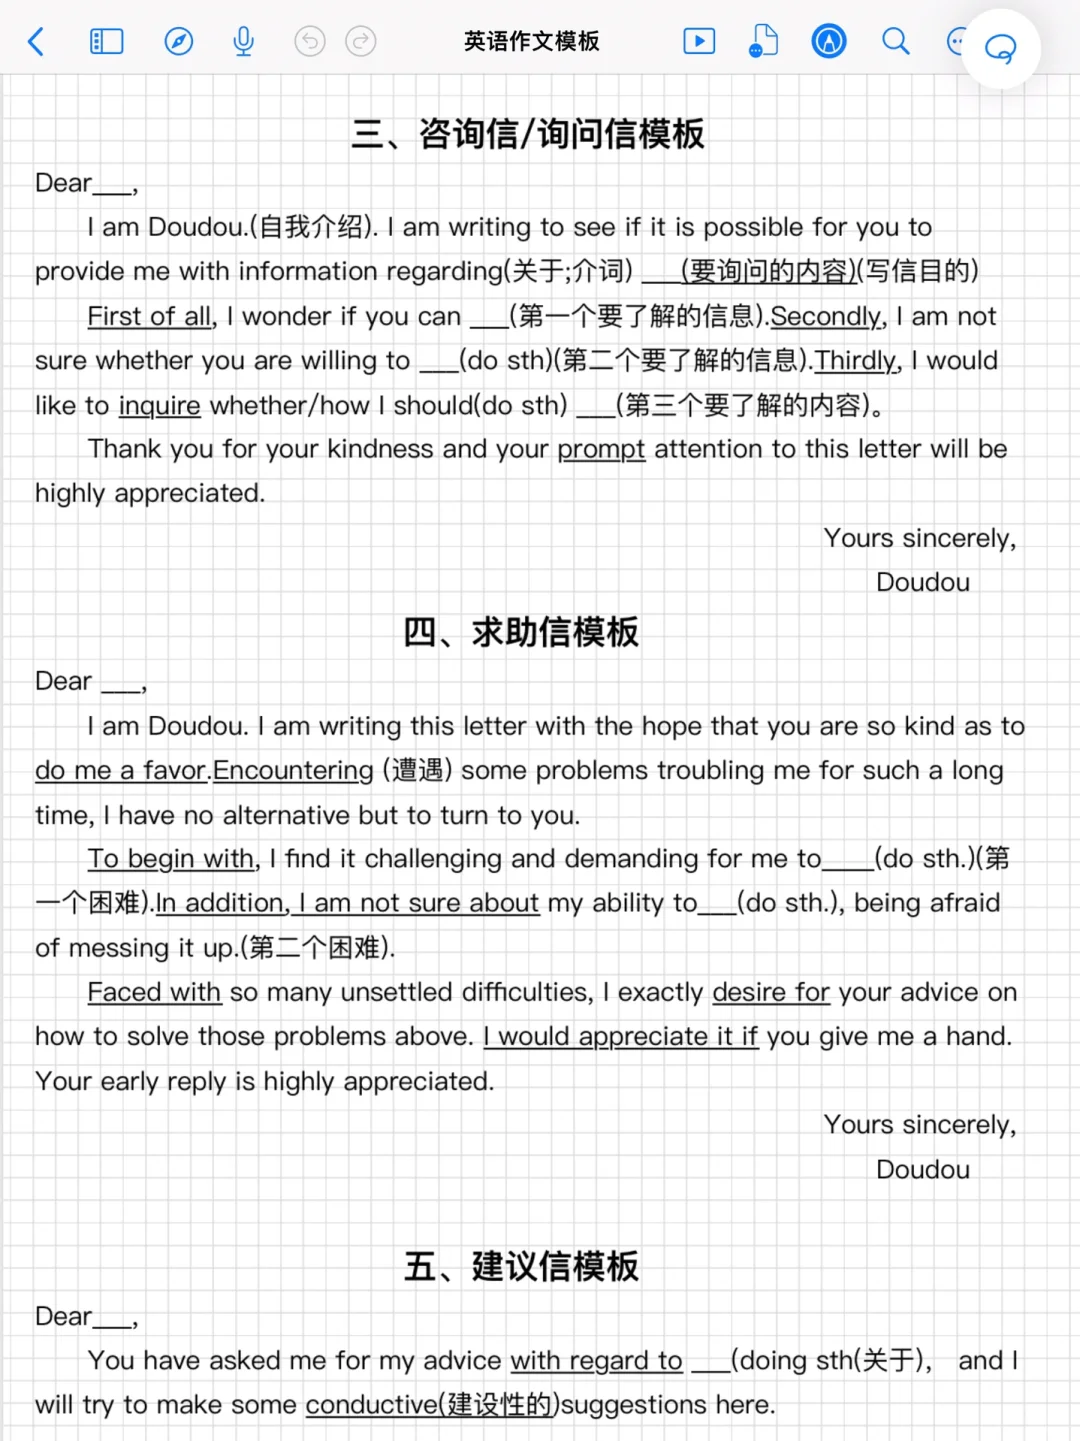 英语作文模板
三、咨询信/询问信模板
Dear___,
I am Doudou.(自我介绍). I am writing to see if it is possible for you to
provide me with information regarding(关于;介词) ___(要询问的内容)(写信目的)
First of all, I wonder if you can ___(第一个要了解的信息).Secondly, I am not
sure whether you are willing to ___(do sth)(第二个要了解的信息).Thirdly, I would
like to inquire whether/how I should(do sth) ___(第三个要了解的内容)。
Thank you for your kindness and your prompt attention to this letter will be
highly appreciated.
Yours sincerely,
Doudou
四、求助信模板
Dear ___,
I am Doudou. I am writing this letter with the hope that you are so kind as to
do me a favor.Encountering (遭遇) some problems troubling me for such a long
time, I have no alternative but to turn to you.
To begin with, I find it challenging and demanding for me to____(do sth.)(第
一个困难).In addition, I am not sure about my ability to___(do sth.), being afraid
of messing it up.(第二个困难).
Faced with so many unsettled difficulties, I exactly desire for your advice on
how to solve those problems above. I would appreciate it if you give me a hand.
Your early reply is highly appreciated.
Yours sincerely,
Doudou
五、建议信模板
Dear___,
You have asked me for my advice with regard to ___(doing sth(关于), and I
will try to make some conductive(建设性的)suggestions here.